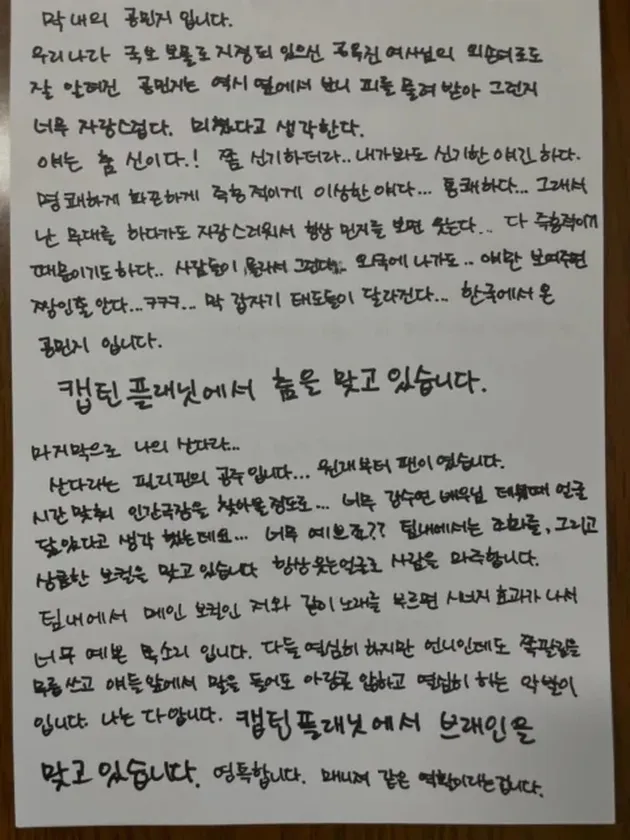 막내의 공민지 입니다.
우리나라 국보 보물로 지정되 있으신 공옥진 여사님의 외손녀로도
잘 알려진 공민지는 역시 옆에서 보니 피를 물려 받아 그런지
너무 자랑스럽다. 미쳤다고 생각한다.
얘는 춤 신이다.! 쫌 신기하더라.. 내가봐도 신기한 얘긴 하다.
명쾌하게 파곤하게 즉흥적이게 이상한 얘다... 통쾌하다... 그래서
난 무대를 하다가도 자랑스러워서 항상 민지를 보면 웃는다... 다 즉흥적이기
때문이기도하다.. 사람들이 몰라서 그런데.. 외국에 나가도.. 얘만 보여주면
짱인줄 안다...ㅋㅋㅋ... 막 갑자기 태도들이 달라진다... 한국에서 온
공민지 입니다.
캡틴플래닛에서 춤을 맞고 있습니다.
마지막으로 나의 산다라...
산다라는 필리핀의 공주입니다... 원래부터 팬이였습니다.
시간 맞춰 인간극장을 찾아볼정도로... 너무 강수연 배우님 데뷔때 얼굴
닮았다고 생각 했는데요... 너무 예쁘죠?? 팀내에서는 조화를, 그리고
상큼한 보컬을 맞고 있습니다 항상웃는얼굴로 사람을 마주합니다.
팀내에서 메인 보컬인 저와 같이 노래를 부르면 시너지 효과가 나서
너무 예쁜 목소리 입니다. 다들 열심히 하지만 언니인데도 쪽팔림을
무릅쓰고 얘들앞에서 말을 들어도 아랑곳 않하고 열심히 하는 악발이
입니다. 나는 다 압니다. 캡틴플래닛에서 브래인을
맞고 있습니다. 영특합니다. 매니져 같은 역할이라는겁니다.